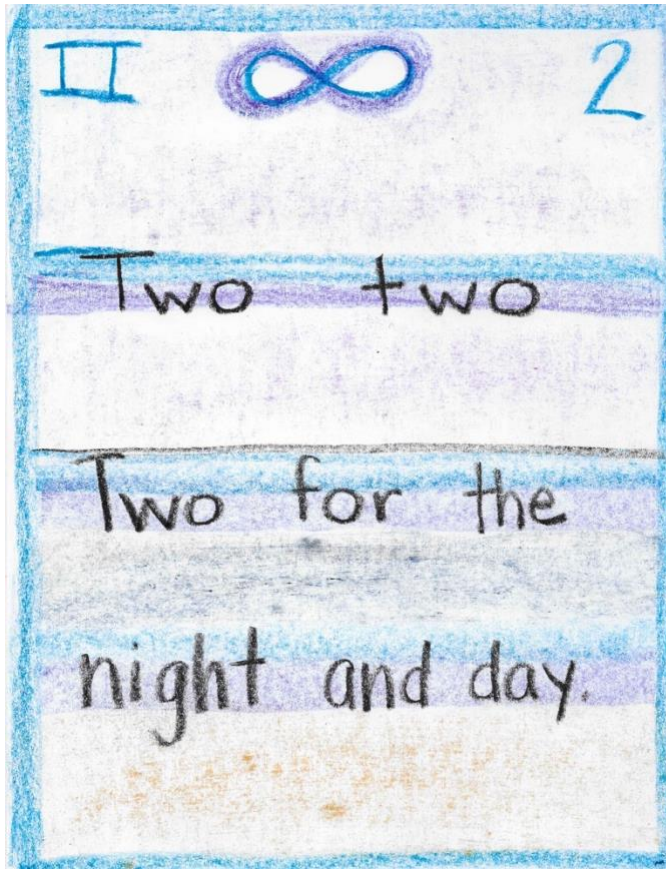 II ∞ 2
Two two
Two for the
night and day.